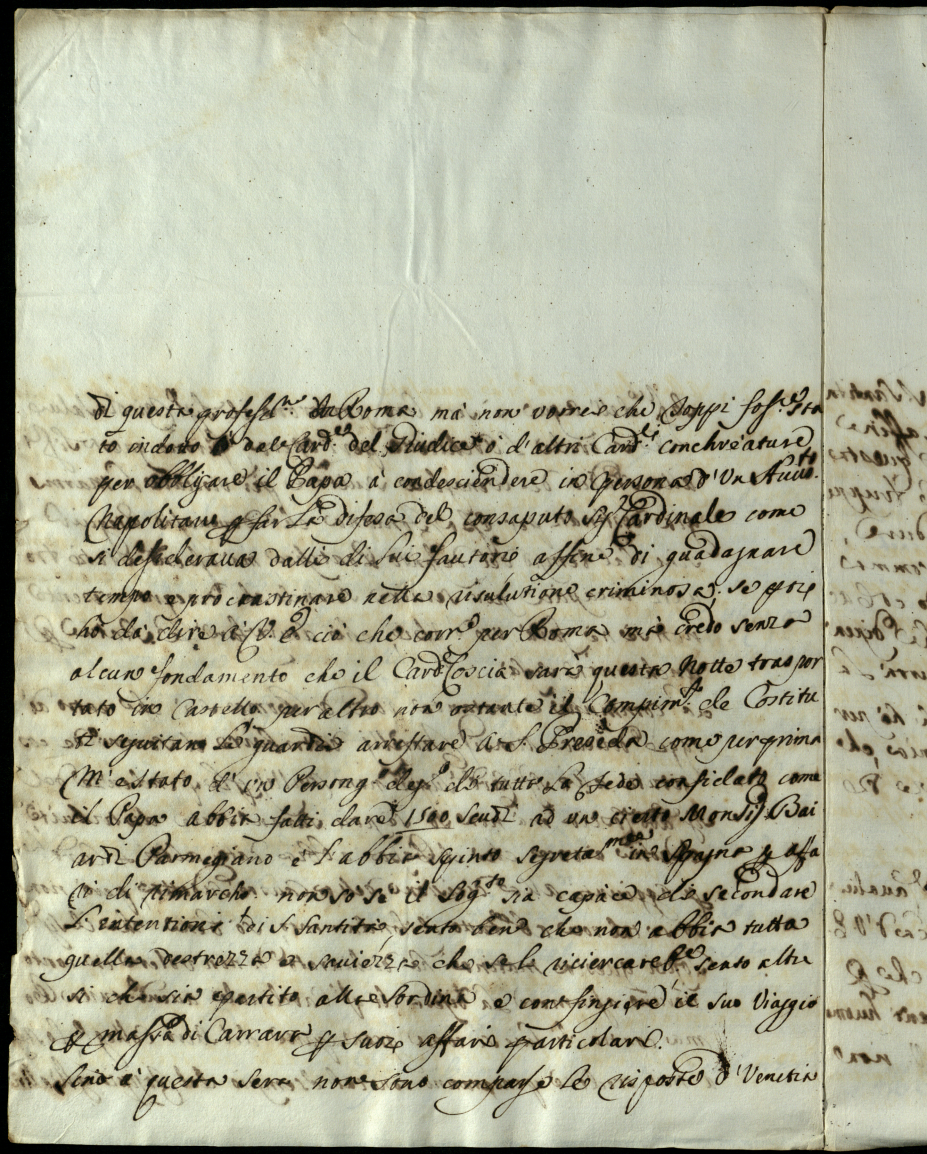 di questa profess.ne in Roma ma non vorrei che doppi foss.e sta
to indotto dal Card.le del Giudice o d'altri Card.li conchreature
per obbligare il Papa a condesciendere in persona d'un Auu.to
Napolitano p far La difesa del consaputo Sig.r Cardinale come
si desideraua dalli di lui fautori affine di guadagnare
tempo e procrastinare nella risulutione criminosa; se
ho da dire a V. E. ciò che corr.e per Roma ma credo senza
alcun fondamento che il Card. Coscia sarà questa Notte traspor
tato in Castello per altro non ostante il Compim.to de Costitu
ti seguitano Le guardie arrestare a S. Preseda come per prima
M'è stato d'un Person.g.o deg.o di tutta La fede confidato come
il Papa abbia fatti dare 1500 scudi ad un certo Monsig. Bai
ardi Parmegiano e L'abbia spinto segretam.te in Spagna p affa
ri di rimarcho non so se il sog.to sia capace di secondare
L'intentioni di S. Santità, sento bene che non abbia tutta
quella destrezza e sauiezza che se le ricercareb.e sento altre
si che sia partito alla sordina e con fingiere il suo Viaggio
p Massa di Carrara p suoi affari particolari.
sino a questa sera non sono comparse Le risposte d'Venetia